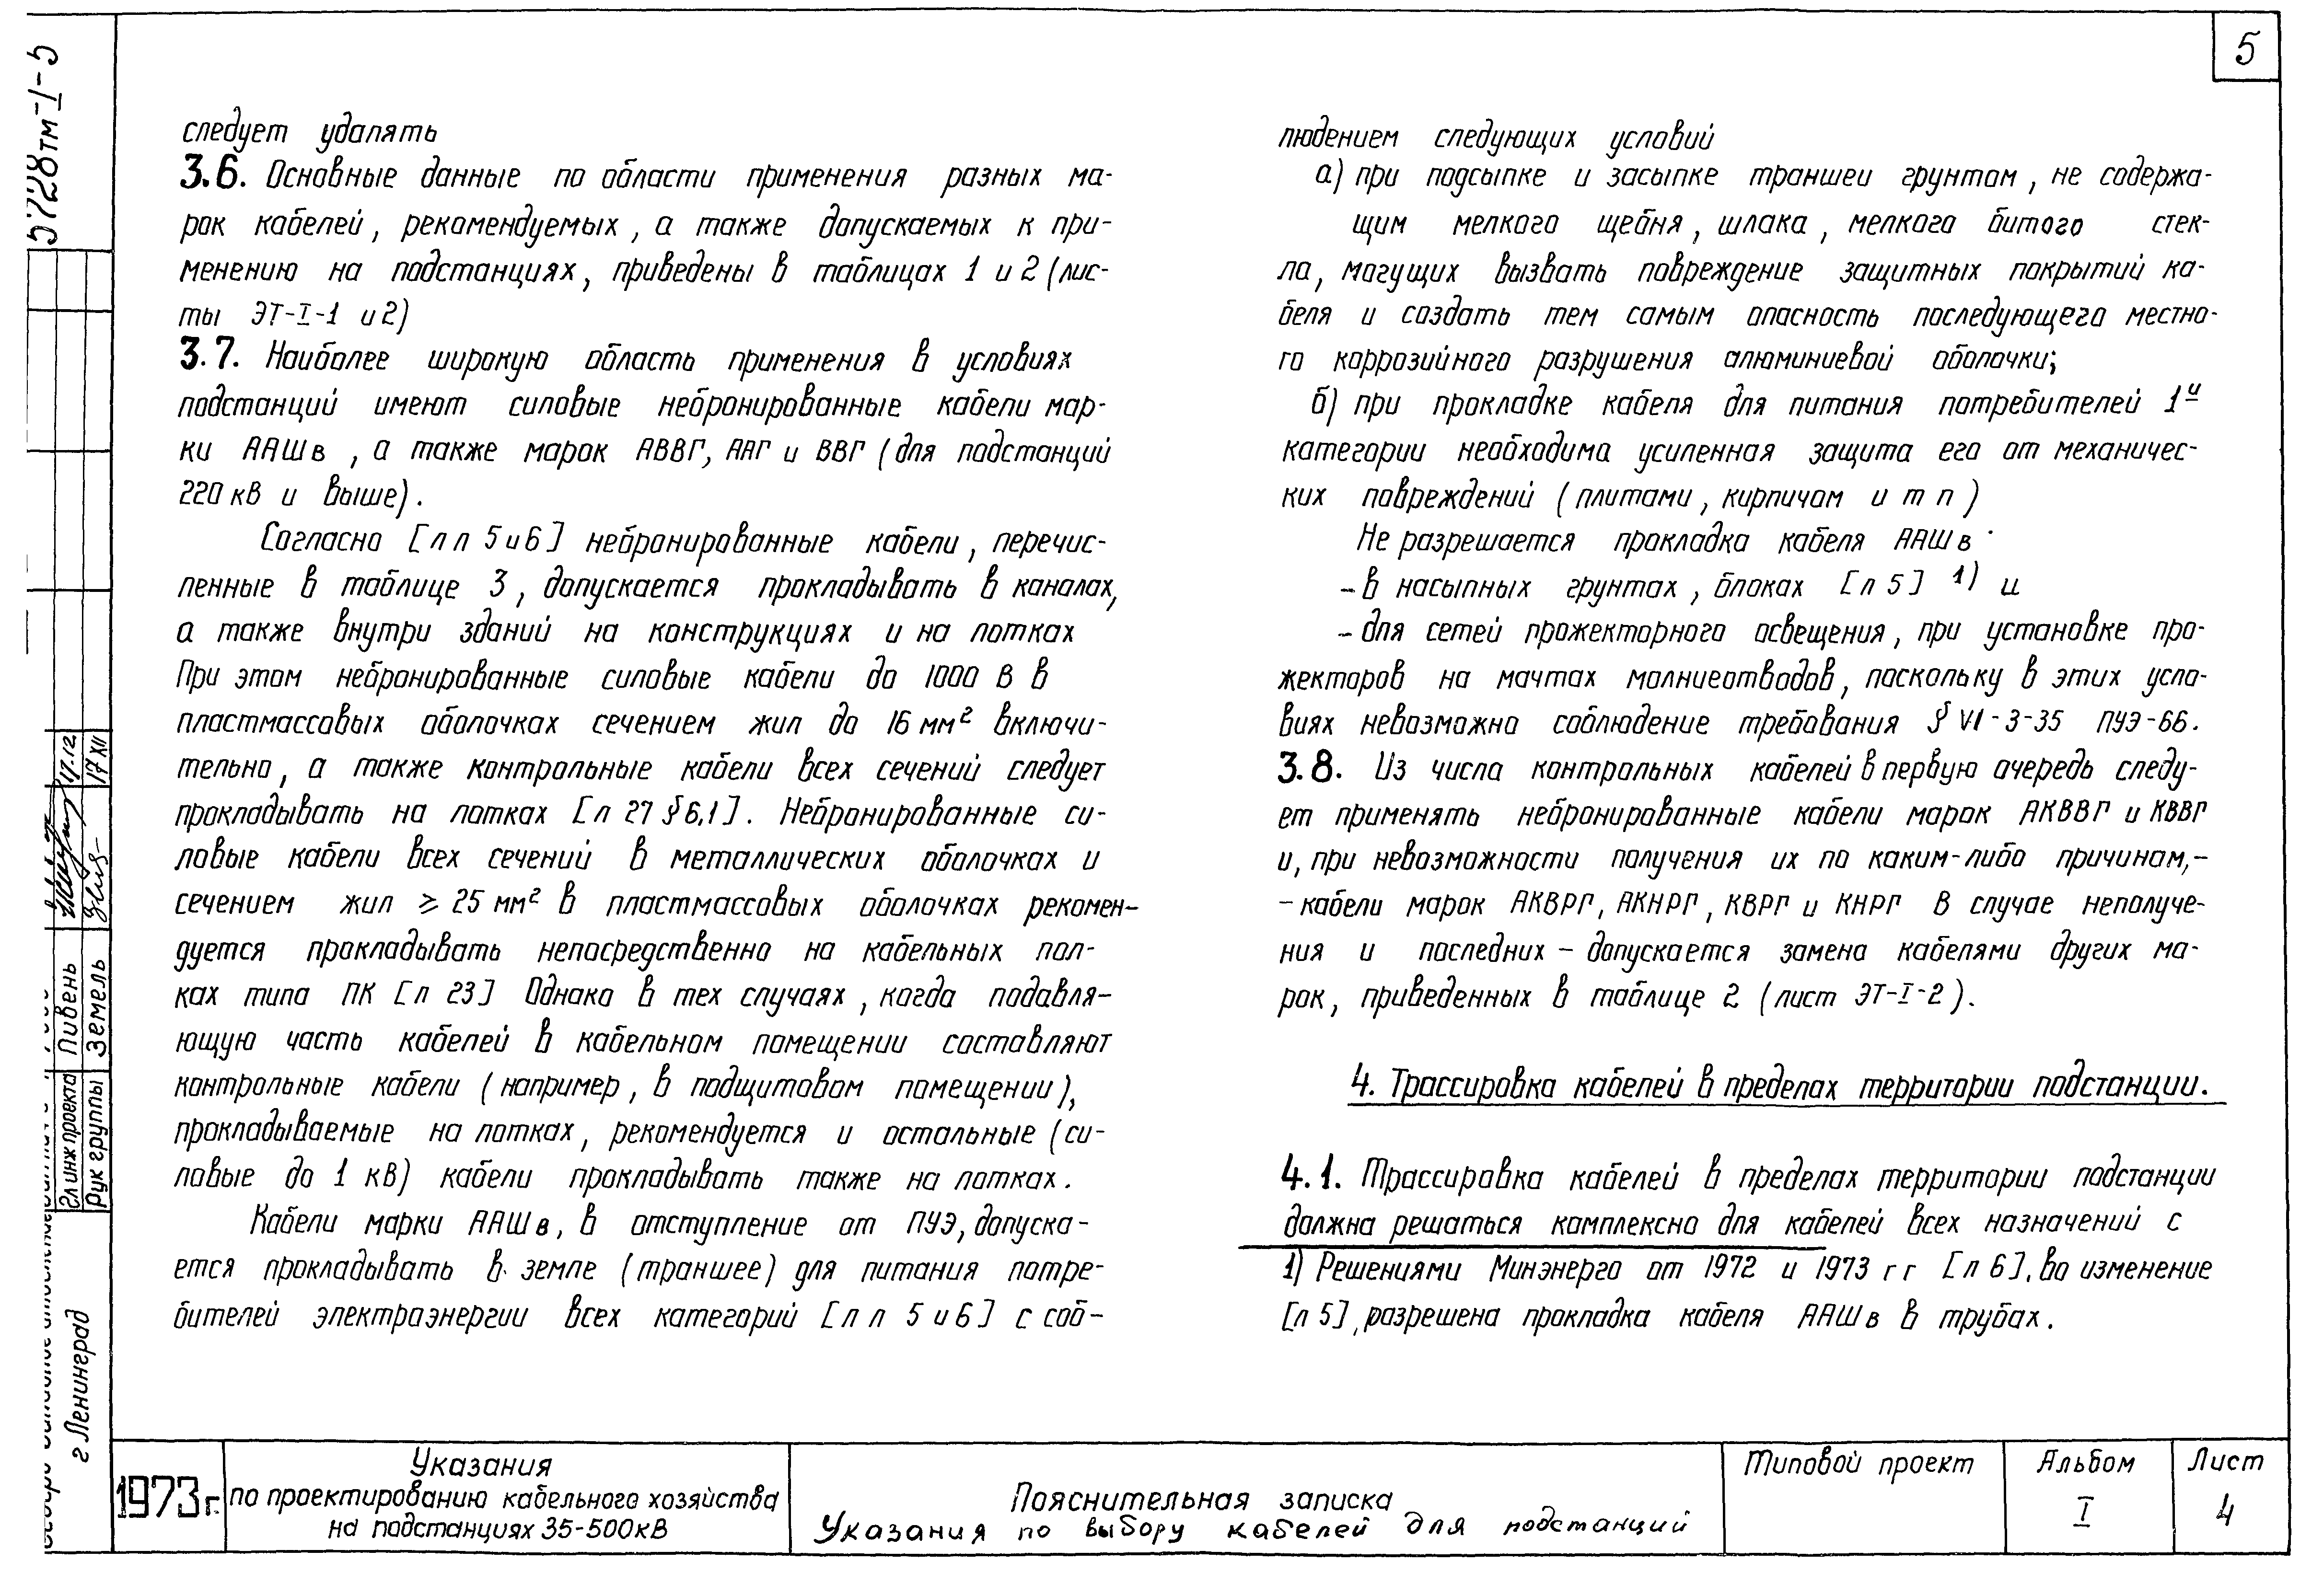 5
5728тм-I-5
следует удалять
3.6. Основные данные по области применения разных ма-
рок кабелей, рекомендуемых, а также допускаемых к при-
менению на подстанциях, приведены в таблицах 1 и 2 (лис-
ты ЭТ-I-1 и 2)
3.7. Наиболее широкую область применения в условиях
подстанций имеют силовые небронированные кабели мар-
ки ААШв, а также марок АВВГ, ААГ и ВВГ (для подстанций
220 кВ и выше).
Согласно [л л 5 и 6] небронированные кабели, перечис-
ленные в таблице 3, допускается прокладывать в каналах,
а также внутри зданий на конструкциях и на лотках
При этом небронированные силовые кабели до 1000 В в
пластмассовых оболочках сечением жил до 16 мм² включи-
тельно, а также контрольные кабели всех сечений следует
прокладывать на лотках [л 27 § 6,1]. Небронированные си-
ловые кабели всех сечений в металлических оболочках и
сечением жил ⩾ 25 мм² в пластмассовых оболочках рекомен-
дуется прокладывать непосредственно на кабельных пол-
ках типа ПК [л 23] Однако в тех случаях, когда подавля-
ющую часть кабелей в кабельном помещении составляют
контрольные кабели (например, в подщитовом помещении),
прокладываемые на лотках, рекомендуется и остальные (си-
ловые до 1 кВ) кабели прокладывать также на лотках.
Кабели марки ААШв, в отступление от ПУЭ, допуска-
ется прокладывать в земле (траншее) для питания потре-
бителей электроэнергии всех категорий [л л 5 и 6] с соб-
людением следующих условий
а) при подсыпке и засыпке траншеи грунтом, не содержа-
щим мелкого щебня, шлака, мелкого битого стек-
ла, могущих вызвать повреждение защитных покрытий ка-
беля и создать тем самым опасность последующего местно-
го коррозийного разрушения алюминиевой оболочки;
б) при прокладке кабеля для питания потребителей 1й
категории необходима усиленная защита его от механичес-
ких повреждений (плитами, кирпичом и т п)
Не разрешается прокладка кабеля ААШв
- в насыпных грунтах, блоках [л 5] 1) и
- для сетей прожекторного освещения, при установке про-
жекторов на мачтах молниеотводов, поскольку в этих усло-
виях невозможно соблюдение требования § VI-3-35 ПУЭ-66.
3.8. Из числа контрольных кабелей в первую очередь следу-
ет применять небронированные кабели марок АКВВГ и КВВГ
и, при невозможности получения их по каким-либо причинам,-
- кабели марок АКВРГ, АКНРГ, КВРГ и КНРГ В случае неполуче-
ния и последних - допускается замена кабелями других ма-
рок, приведенных в таблице 2 (лист ЭТ-I-2).
4. Трассировка кабелей в пределах территории подстанции.
4.1. Трассировка кабелей в пределах территории подстанции
должна решаться комплексно для кабелей всех назначений с
1) Решениями Минэнерго от 1972 и 1973 г г [л 6], во изменение
[л 5], разрешена прокладка кабеля ААШв в трубах.
17.12
17 XII
Гл инж проекта Пивень
Рук группы Земель
г Ленинград
1973 г.
Указания
по проектированию кабельного хозяйства
на подстанциях 35-500кВ
Пояснительная записка
Указания по выбору кабелей для подстанций
Типовой проект
Альбом
I
Лист
4